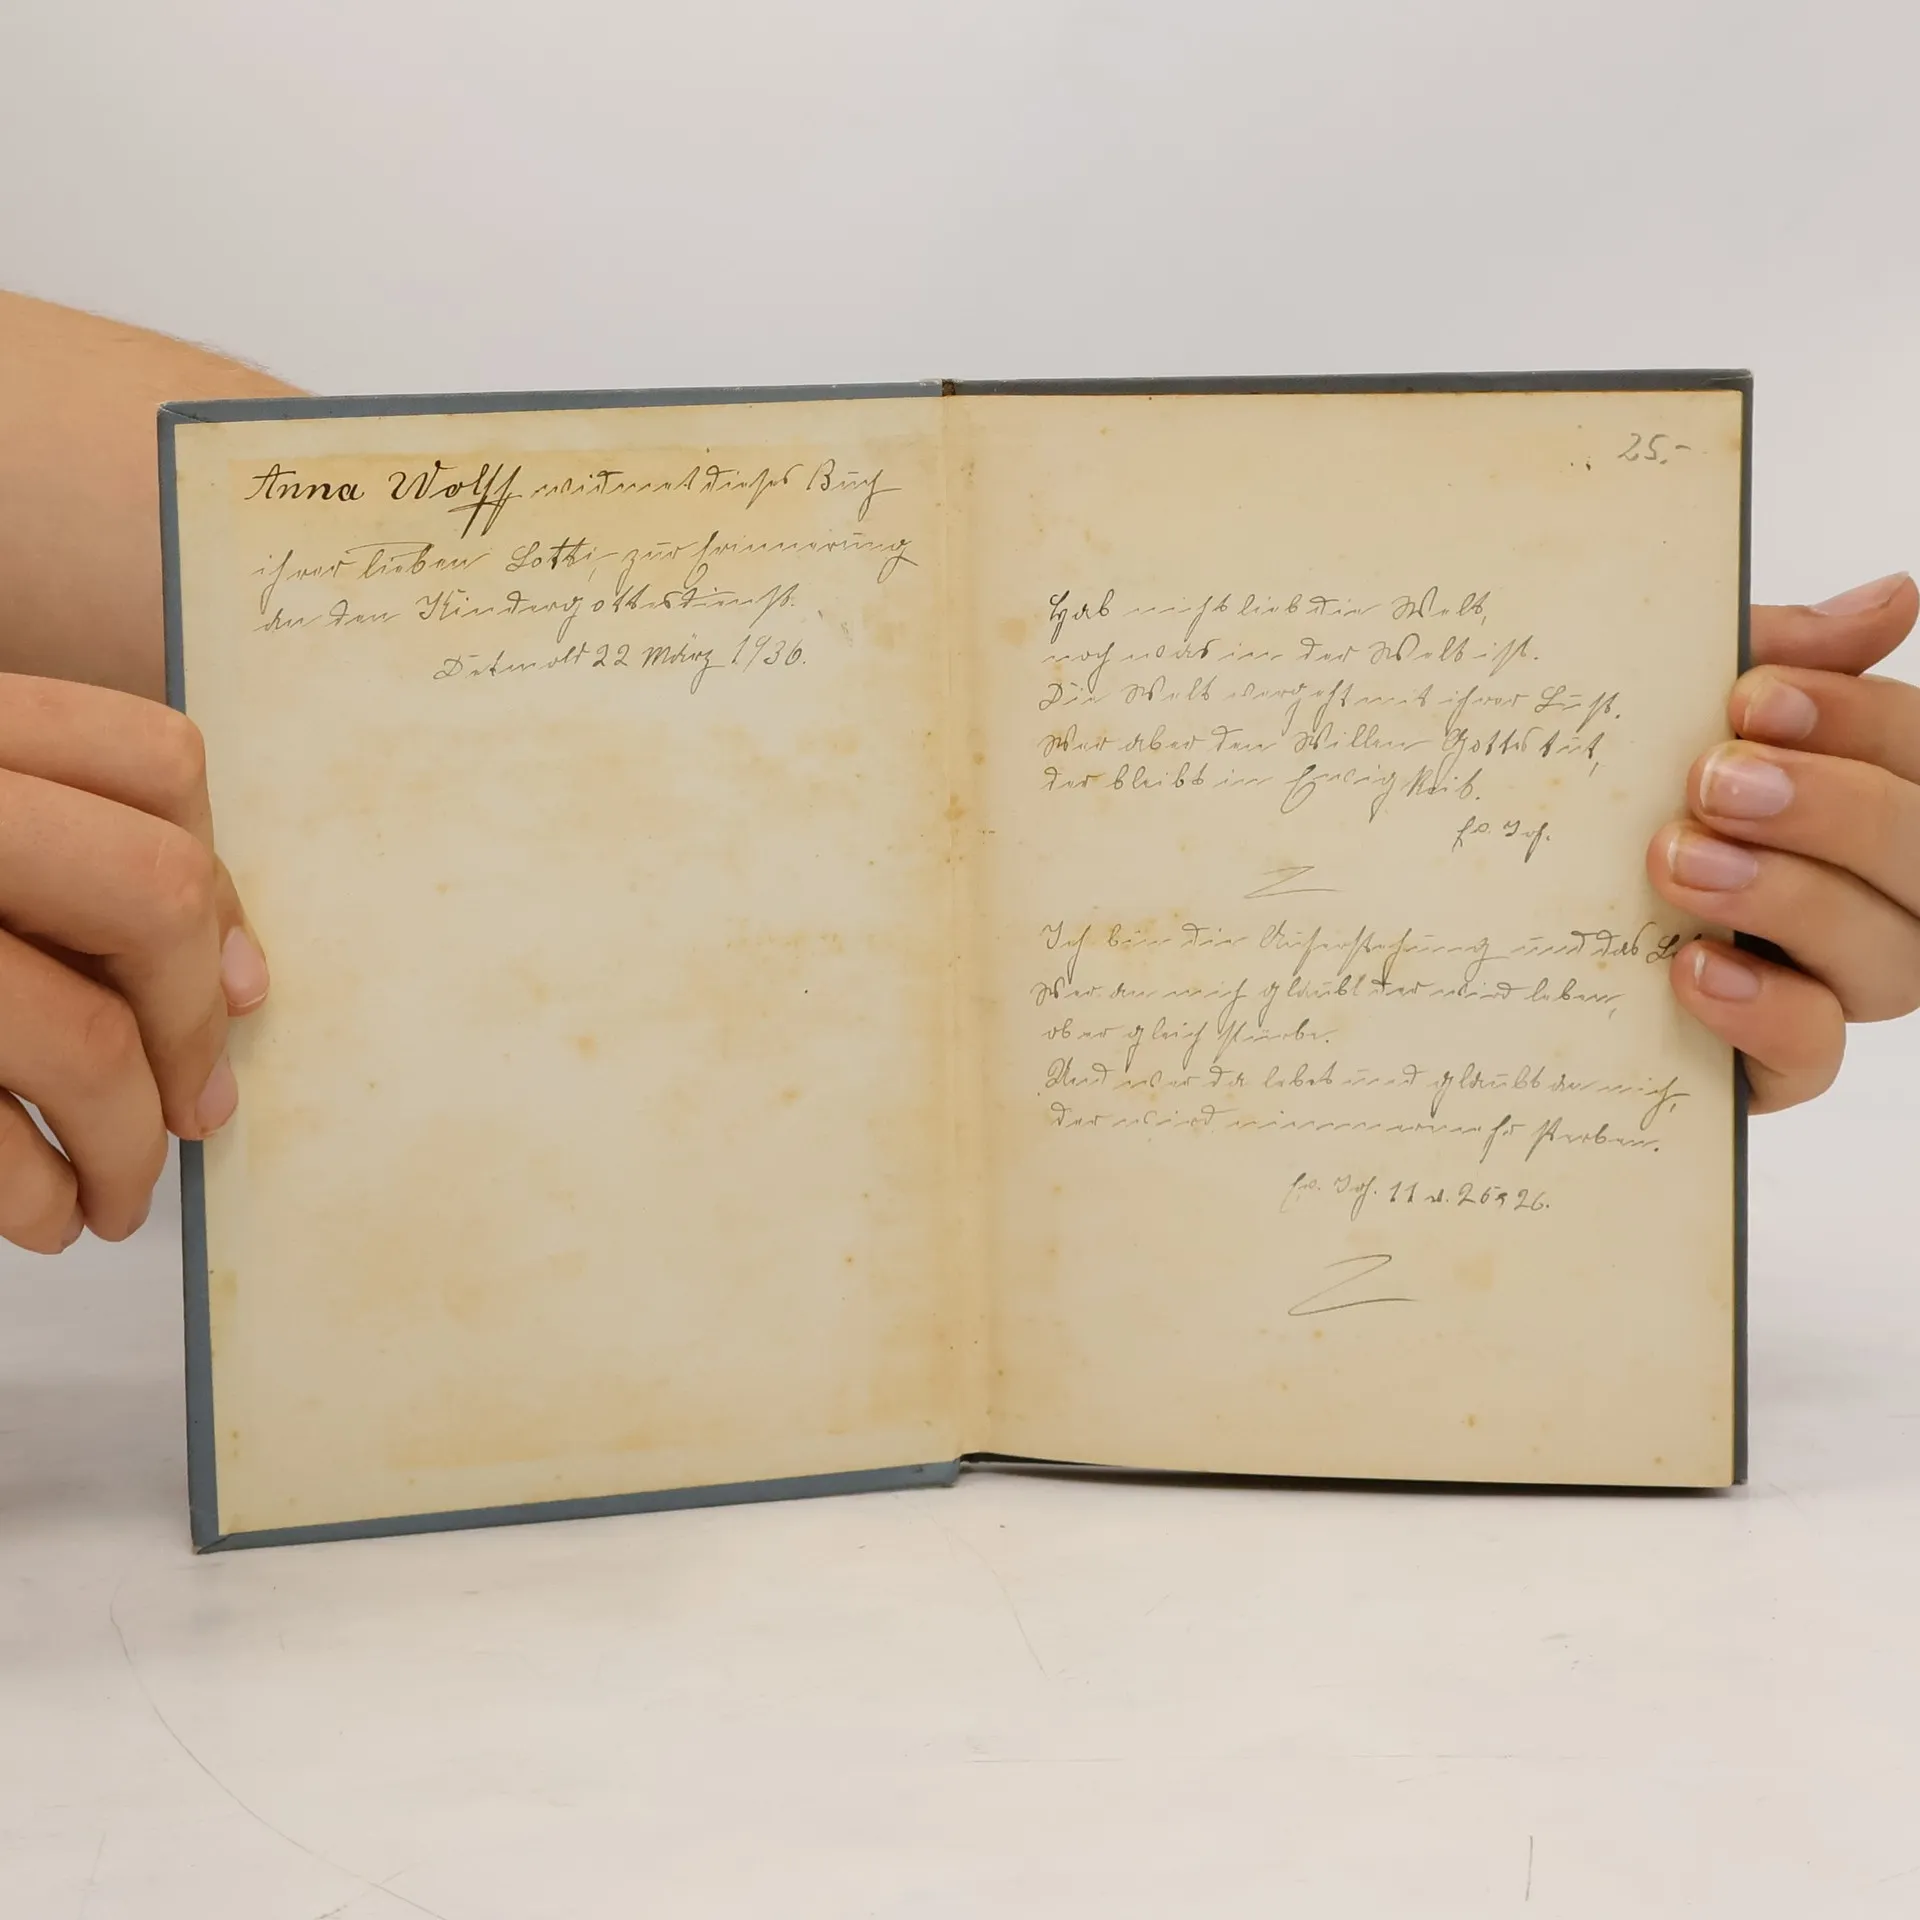 Anna Wolff widmet dieses Buch
ihrer lieben Lotti, zur Erinnerung
an den Kindergottesdienst.
Detmold 22 März 1936.
25.-
Hab nicht lieb die Welt,
noch was in der Welt ist.
Die Welt vergeht mit ihrer Lust.
Wer aber den Willen Gottes tut,
der bleibt in Ewigkeit.
Ev. Joh.
Ich bin die Auferstehung und das
Wer an mich glaubt der wird leben,
ob er gleich stürbe.
Und wer da lebet und glaubt an mich,
der wird nimmermehr sterben.
Ev. Joh. 11 v. 25, 26.